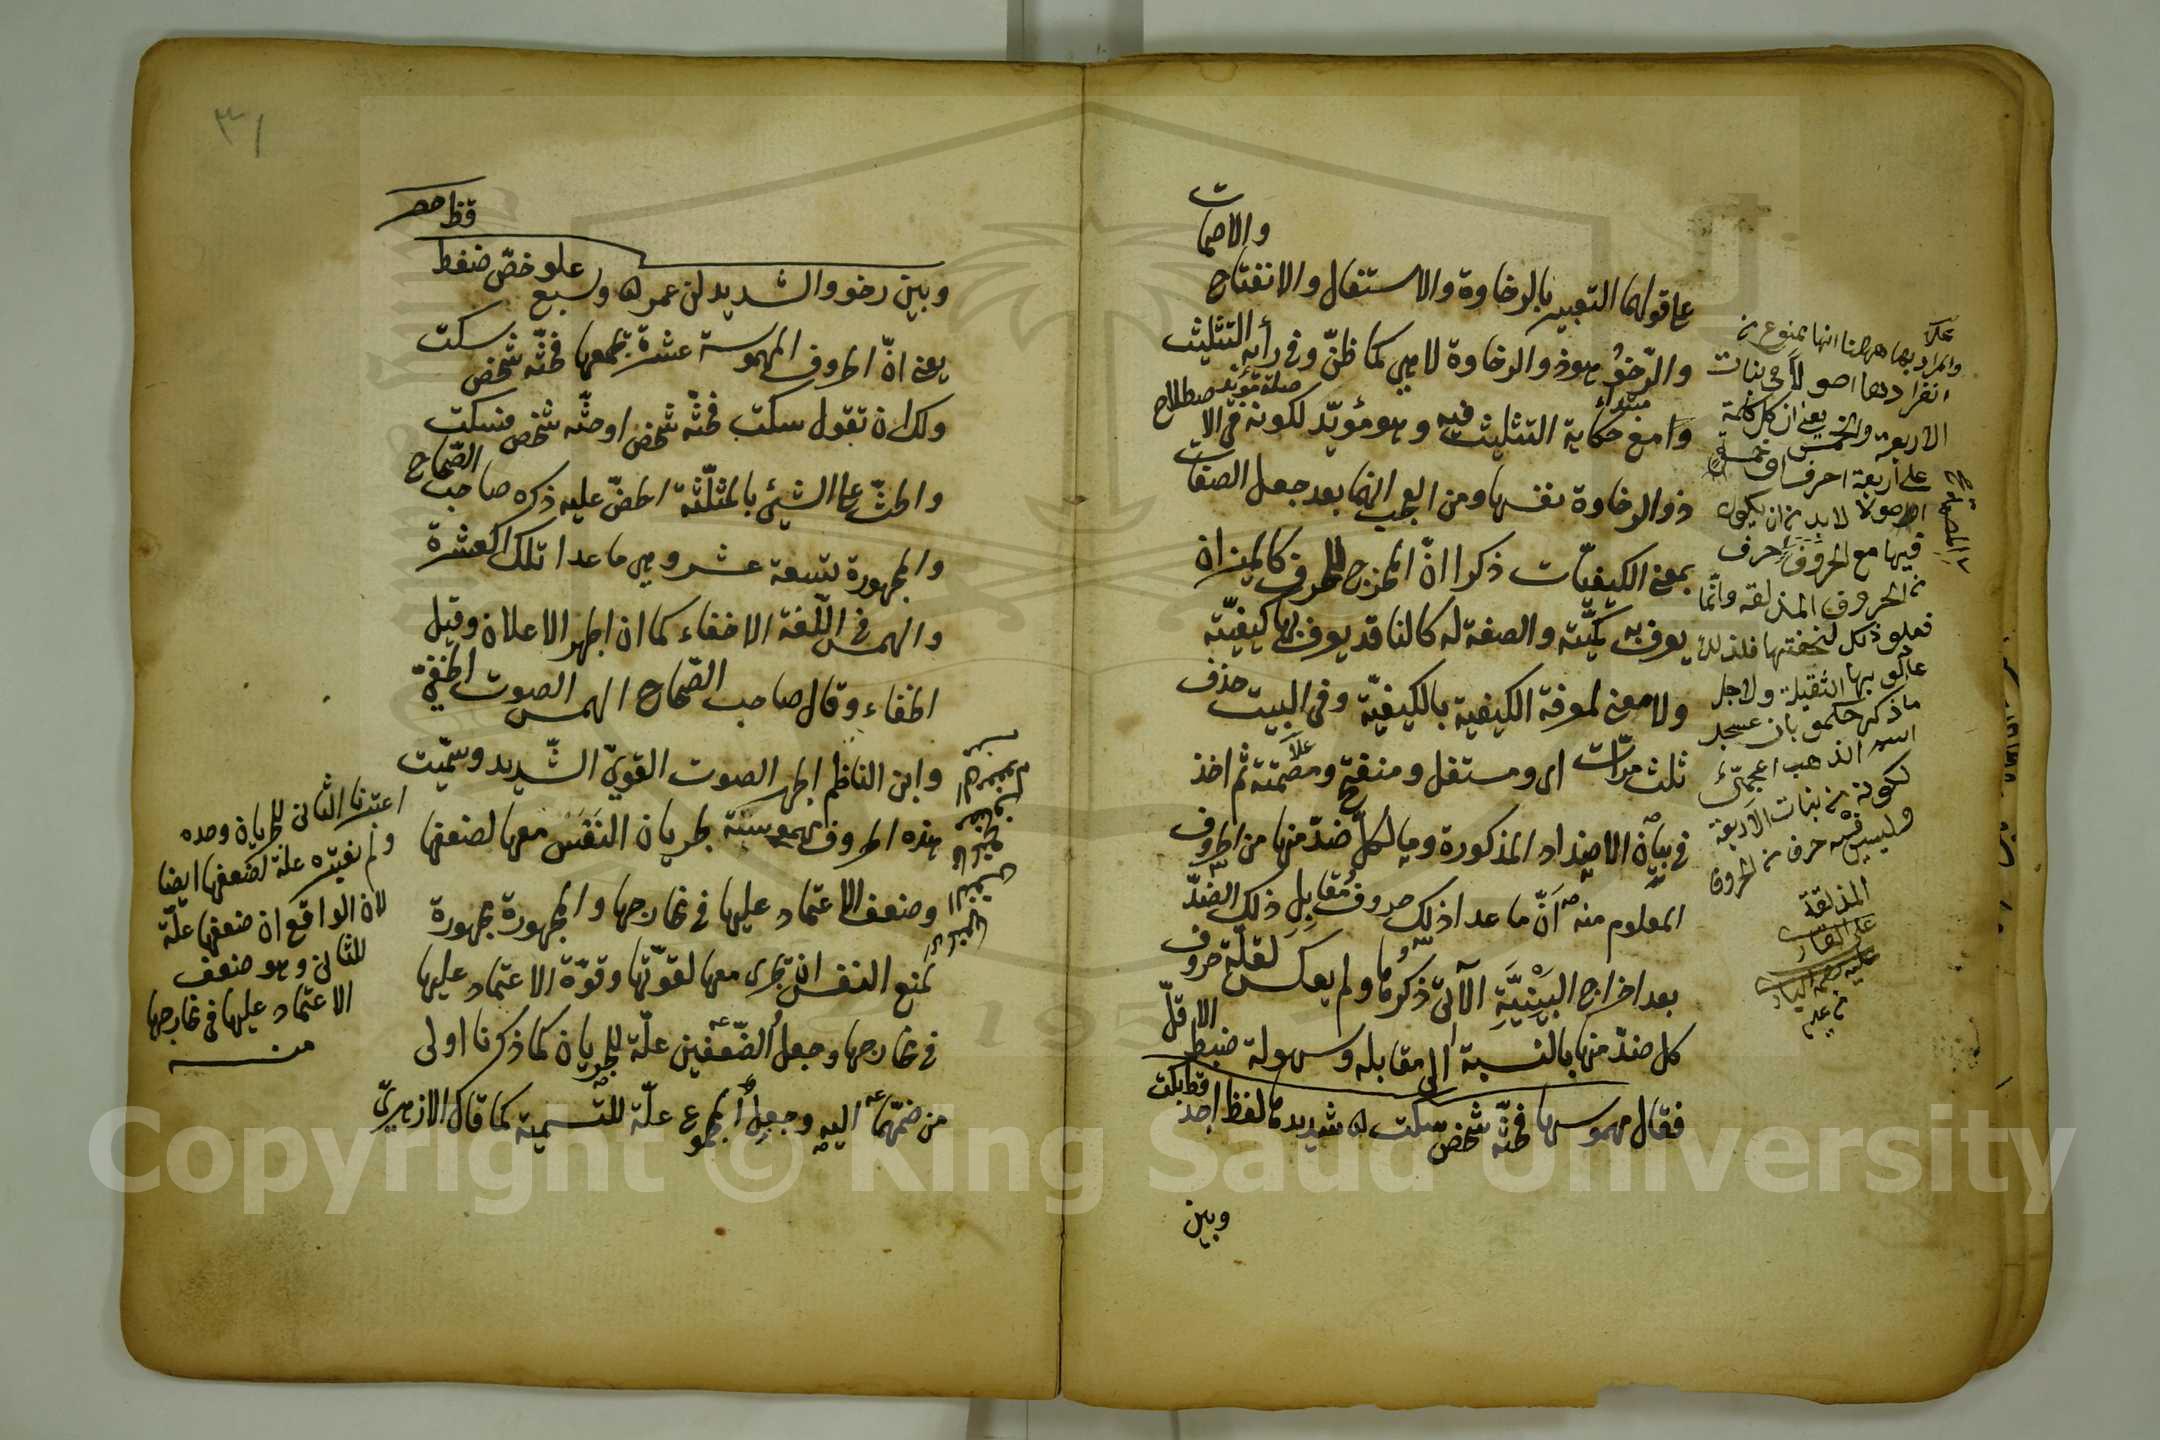 والاصمات
على قولهما التعبير بالرخاوة والاستفال والانفتاح
والرّخو هو ذو الرخاوة لا هي كما ظنّ وفي رأيه التثليث
مبتداء صلة مؤيد
وامغ حكاية التثليث فيه وهو مؤيّد لكونه في الاصطلاح
ذو الرخاوة نفسها ومن العجب انهما بعد جعل الصفات
بمعنى الكيفيّات ذكرا انّ المخرج للحرف كالميزان
يعرف به كمّيّته والصفة له كالناقد يعرف بها كيفيّته
ولا معنى لمعرفة الكيفية بالكيفيّة وفي البيت حذف
ثلث مرّات اى ومستفل ومنفتح ومصمتة ثم اخذ
في بيان الاضداد المذكورة وما لكلّ ضدّ منها من الحروف
المعلوم منه انّ ما عدا ذلك حروف مقابل ذلك الضدّ
بعد اخراج البينيّة الآتى ذكرها ولم يعكس لقلّة حروف
كل ضدّ منها بالنسبة الى مقابله وسهولة ضبط الاقلّ
فقال مهموسها فحثّه شخص سكت ه شديدها لفظ اجد قط بكت
وبين
والمراد بها ههنا انها ممنوع من
انفرادها اصولا في بنات
الاربعة والخمس يعنى ان كل كلمة
على اربعة احرف او خمسة
اصولا لا بد من ان يكون
فيها مع الحروف حرف
من الحروف المذلقة وانّما
فعلو ذلك لخفتها فلذلك
عادلو بها الثقيلة ولاجل
ما ذكر حكمو بان عسجد
اسم الذهب اعجمىّ
لكونه من بنات الاربعة
وليس فيه حرف من الحروف
المذلقة
على القارى
٣١
قظ حصر
وبين رخو والشديد لن عمر ه وسبع علو خصّ ضغط
يعنى انّ الحروف المهموسة عشرة يجمعها فحثّه شخص سكت
ولك ان تقول سكت فحثّه شخص او حثّه شخص فسكت
والحثّ على الشيئ بالمثلّثة الحضّ عليه ذكره صاحب الصّحاح
والمجهورة تسعة عشر وهى ما عدا تلك العشرة
والهمس في اللّغة الاخفاء كما ان الجهر الاعلان وقيل
الخفاء وقال صاحب الصّحاح الهمس الصوت الخفيّ
وابن الناظم الجهر الصوت القويّ الشّديد وسمّيت
هذه الحروف مهموسة لجريان النفس معها لضعفها
وضعف الاعتماد عليها في مخارجها والمجهورة مجهورة
لمنع النفس ان تجرى معها لقوّتها وقوّة الاعتماد عليها
في مخارجها وجعل الضّعفين علّة للجريان كما ذكرنا اولى
من ضمّهما اليه وجعل المجموع علّة للتّسمية كما قال الازهريّ
اعتبرنا الثانى للجريان وحده
ولم نعتبره علة لضعفها ايضا
لان الواقع ان ضعفها علّة
للثانى وهو ضعف
الاعتماد عليها في مخارجها
منه